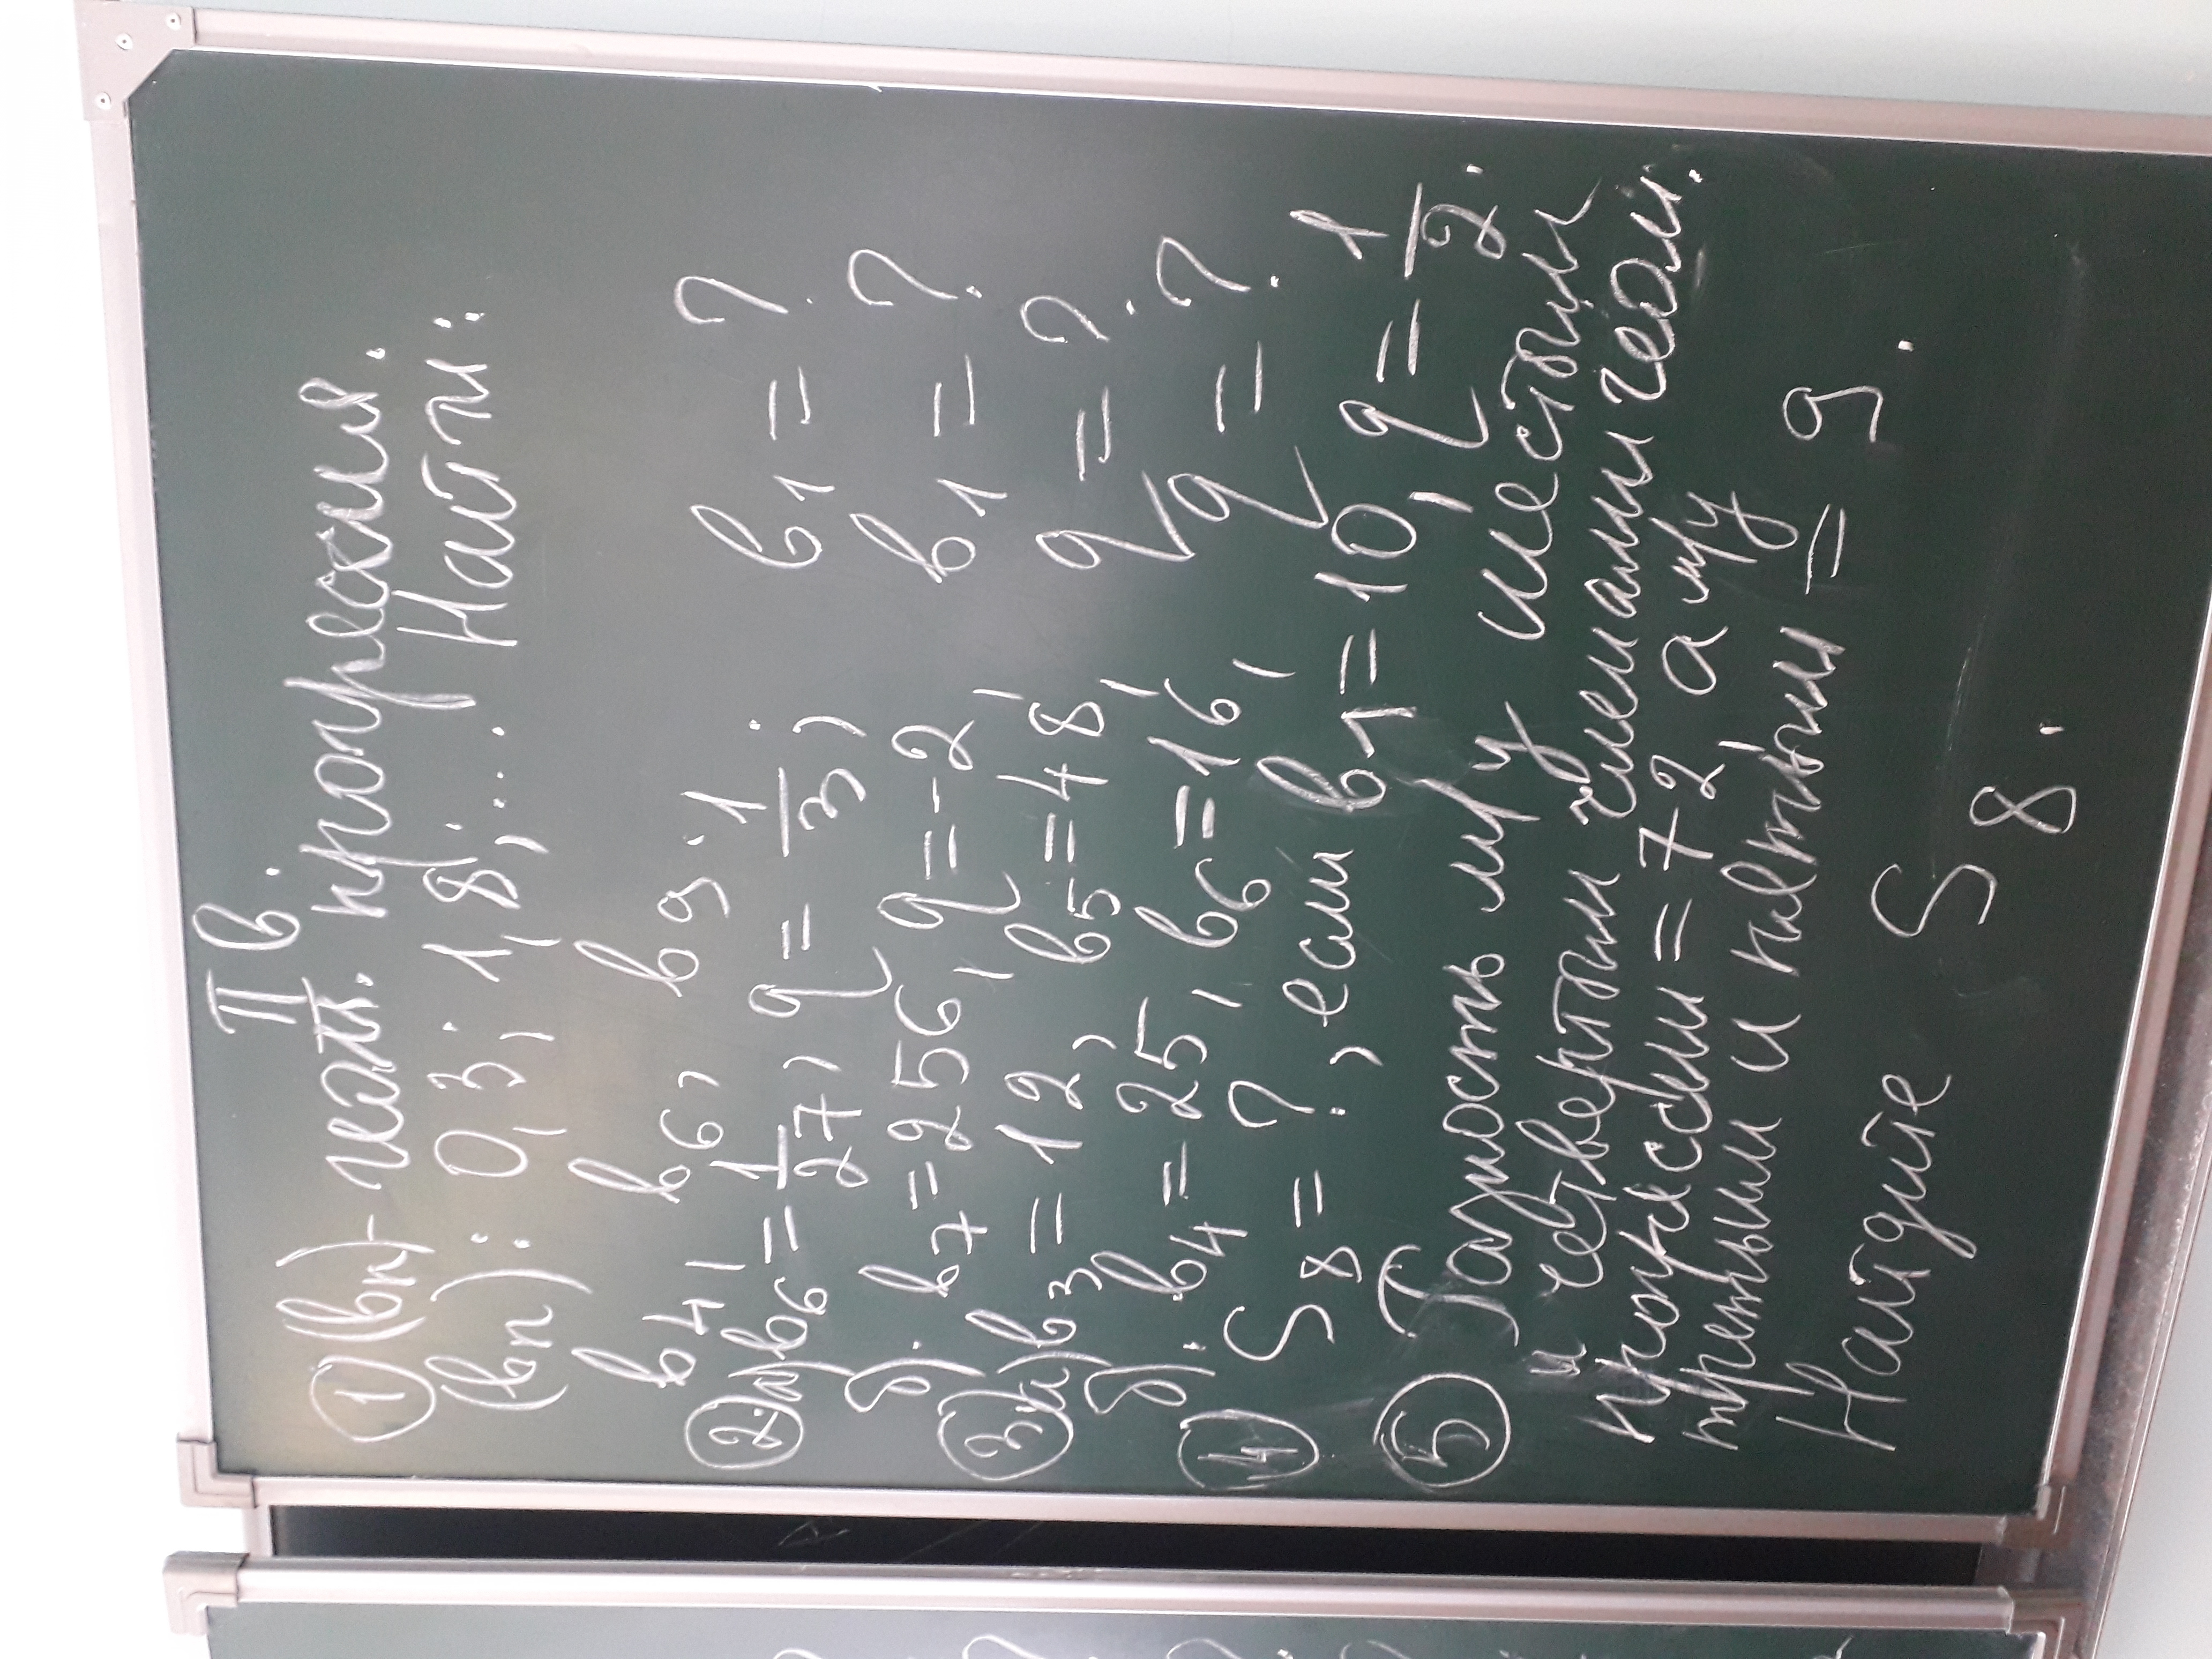 II в.
① (bn) - геом. прогрессия.
(bn): 0,3; 1,8; ... Найти:
b4, b6, b9.
② а) b6 = 1/27, q = 1/3; b1 = ?
б). b7 = 256, q = -2, b1 = ?
③ а) b3 = 12, b5 = 48, q = ?
б). b4 = 25, b6 = 16, q = ?
④ S8 = ?, если b1 = 10, q = 1/2.
⑤ Разность м/у шестым
и четвертым членами геом.
прогрессии = 72, а м/у
третьим и пятым = 9.
Найдите S8.